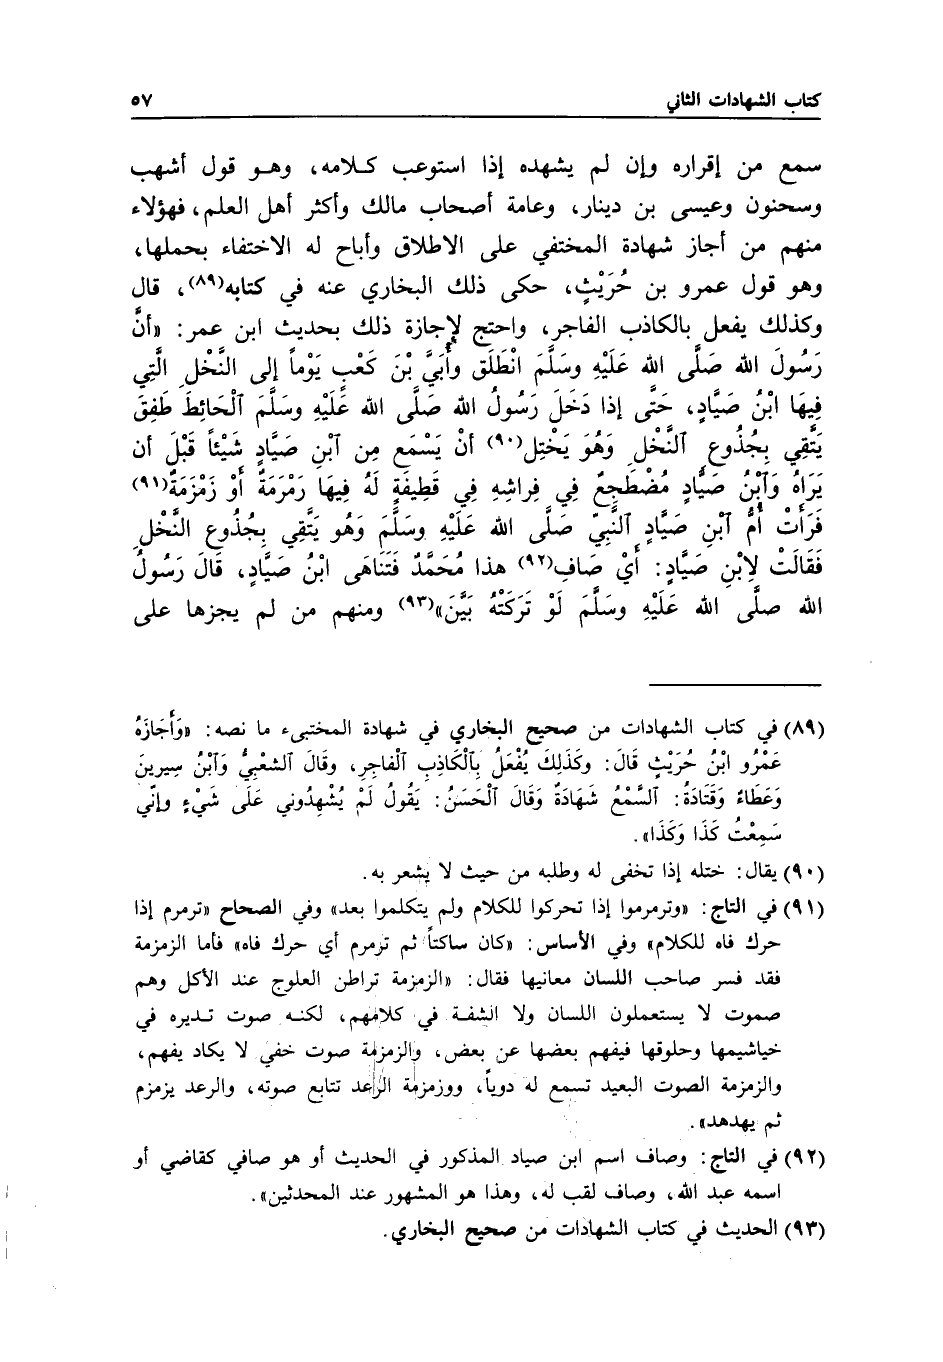 كتاب الشهادات الثاني ٥٧
سمع من إقراره وإن لم يشهده إذا استوعب كلامه، وهو قول أشهب
وسحنون وعيسى بن دينار، وعامة أصحاب مالك وأكثر أهل العلم، فهؤلاء
منهم من أجاز شهادة المختفي على الاطلاق وأباح له الاختفاء بحملها،
وهو قول عمرو بن حُرَيْثٍ، حكى ذلك البخاري عنه في كتابه(٨٩)، قال
وكذلك يفعل بالكاذب الفاجر، واحتج لإجازة ذلك بحديث ابن عمر: «أنَّ
رَسُولَ الله صَلَّى الله عَلَيْهِ وسَلَّمَ انْطَلَق وأُبَيَّ بْنَ كَعْبٍ يَوْماً إلى النَّخْلِ الَّتِي
فِيهَا ابْنُ صَيَّادٍ، حَتَّى إذا دَخَلَ رَسُولُ الله صَلَّى الله عَلَيْهِ وسَلَّمَ ٱلْحَائِطَ طَفِقَ
يَتَّقِي بِجُذُوعِ ٱلنَّخْلِ وَهُوَ يَخْتِل(٩٠) أنْ يَسْمَع مِن ٱبْنِ صَيَّادٍ شَيْئاً قَبْلَ أن
يَرَاهُ وَٱبْنُ صَيَّادٍ مُضْطَجِعٌ فِي فِراشِهِ فِي قَطِيفَةٍ لَهُ فِيهَا رَمْرَمَةٌ أَوْ زَمْزَمَةٌ(٩١)
فَرَأَتْ أُمُّ ٱبْنِ صَيَّادٍ ٱلنَّبِيّ صَلَّى الله عَلَيْهِ وسَلَّمَ وَهُو يَتَّقِي بِجُذُوعِ النَّخْلِ
فَقَالَتْ لِابْنِ صَيَّادٍ: أَيْ صَاف(٩٢) هذا مُحَمَّدٌ فَتَنَاهَى ابْنُ صَيَّادٍ، قَالَ رَسُولُ
الله صلَّى الله عَلَيْهِ وسَلَّمَ لَوْ تَرَكَتْهُ بَيَّنَ»(٩٣) ومنهم من لم يجزها على
(٨٩) في كتاب الشهادات من صحيح البخاري في شهادة المختبىء ما نصه: «وَأَجَازَهُ
عَمْرُو ابْنُ حُرَيْثٍ قَالَ: وكَذَلِكَ يُفْعَلُ بِٱلْكَاذِبِ ٱلْفاجِرِ، وقَالَ ٱلشعْبِيُّ وَٱبْنُ سِيرينَ
وَعَطَاءٌ وَقَتَادَةُ: ٱلسَّمْعُ شَهَادَةٌ وَقَالَ ٱلْحَسَنُ: يَقُولُ لَمْ يُشْهِدُوني عَلَى شَيْءٍ وإنّي
سَمِعْتُ كَذَا وَكَذَا».
(٩٠) يقال: ختله إذا تخفى له وطلبه من حيث لا يشعر به.
(٩١) في التاج: «وترمرموا إذا تحركوا للكلام ولم يتكلموا بعد» وفي الصحاح «ترمرم إذا
حرك فاه للكلام» وفي الأساس: «كان ساكتاً ثم ترمرم أي حرك فاه» فأما الزمزمة
فقد فسر صاحب اللسان معانيها فقال: «الزمزمة تراطن العلوج عند الأكل وهم
صموت لا يستعملون اللسان ولا الشفة في كلامهم، لكنه صوت تديره في
خياشيمها وحلوقها فيفهم بعضها عن بعض، والزمزمة صوت خفي لا يكاد يفهم،
والزمزمة الصوت البعيد تسمع له دوياً، ووزمزمة الرَّاعد تتابع صوته، والرعد يزمزم
ثم يهدهد».
(٩٢) في التاج: وصاف اسم ابن صياد المذكور في الحديث أو هو صافي كقاضي أو
اسمه عبد الله، وصاف لقب له، وهذا هو المشهور عند المحدثين».
(٩٣) الحديث في كتاب الشهادات من صحيح البخاري.